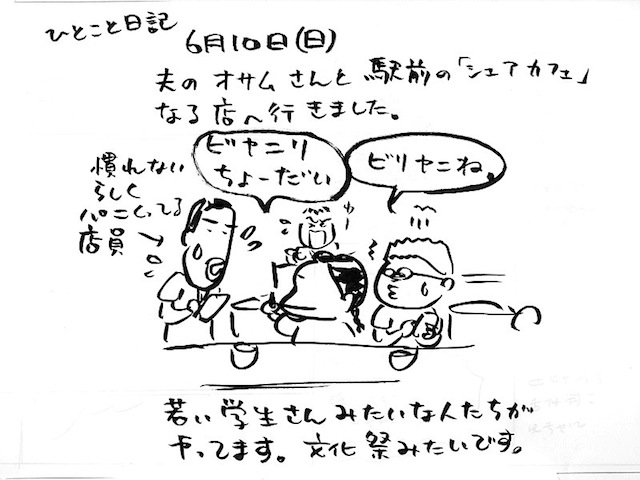 ひとこと日記
6月10日(日)
夫のオサムさんと駅前の「シェアカフェ」
なる店へ行きました。
ビヤニリ
ちょーだい
ビリヤニね。
慣れない
らしく
パニくってる
店員→
若い学生さんみたいな人たちが
やってます。文化祭みたいです。